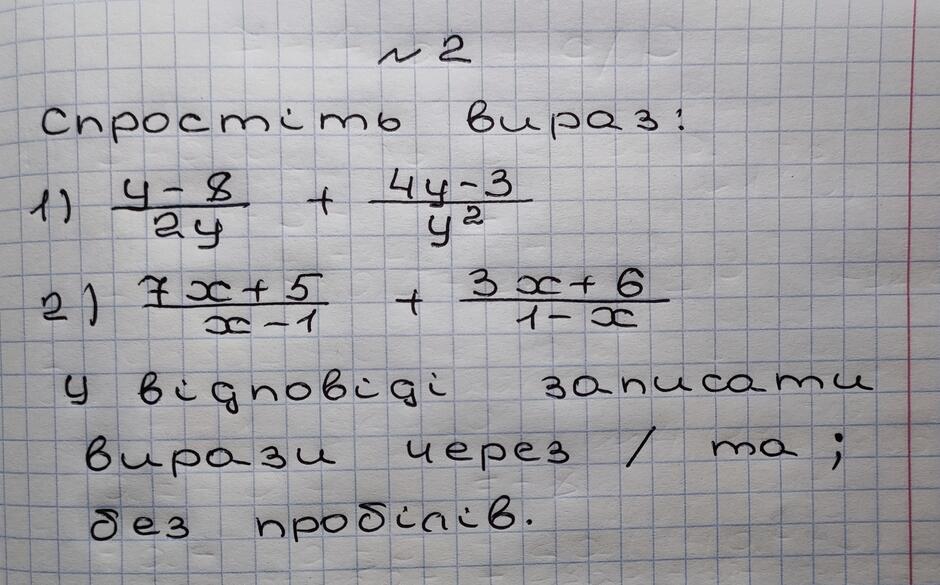 № 2
Спростіть вираз:
1) (y-8)/(2y) + (4y-3)/(y²)
2) (7x+5)/(x-1) + (3x+6)/(1-x)
У відповіді записати
вирази через / та ;
без пробілів.